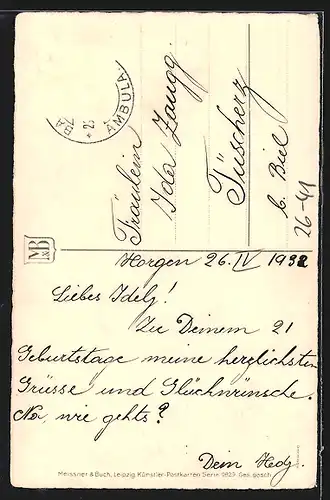 AMBULA
Fräulein
Ida Zaugg.
Tüscherz
b. Biel
26-41
M&B
Horgen 26. IV 1932
Liebes Idely!
Zu Deinem 21
Geburtstage meine herzlichsten
Grüsse und Glückwünsche.
Na, wie gehts?
Dein Hedy.
Meissner & Buch, Leipzig Künstler-Postkarten Serie 1829 Ges. gesch